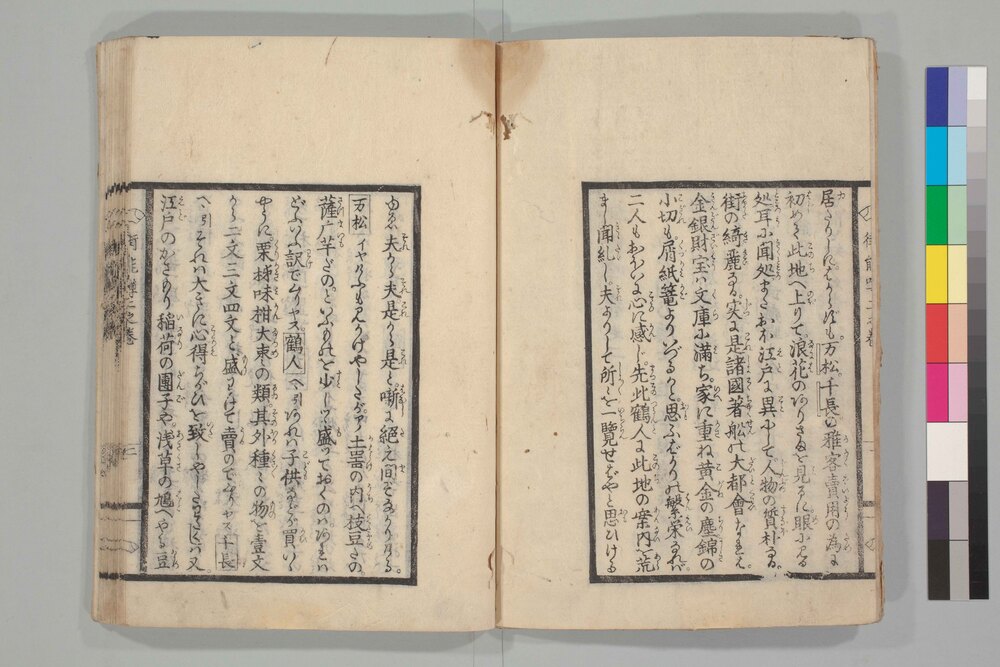 居たりしにぞありける万松千長の雅客売用の為に
初めて此地へ上りて浪花のありさまを見るに眼に見る
処耳に聞処までなほ江戸に異にして人物の質朴なる
街の綺麗なる実に是諸國著船の大都會なれば
金銀財宝は文庫に満ち家に重ね黄金の塵錦の
小切も屑紙篭よりいづるかと思ふばかりの繁栄なれば
二人もおのおの心に感じ先此鶴人に此地の案内を荒
まし聞糺し夫よりして所々を一覧せばやと思ひける
ゆゑ夫から夫是から是と噺に絶え間ぞなかりける
万松 イヤけふも見かけやしたがアノ土器の内へ枝豆だの
薩广芋だのといふものを少しヅヽ盛つておくのはありや
どういふ訳でムリヤス 鶴人 ヘヽ引あれは子供などが買いに
やらに栗柿味柑大束の類其外種々の物を壹文
から二文三文四文と盛わけて賣のでムリヤス 千長
ヘヽ引それは大きに心得ちがひを致しやしたわたくしは又
江戸のかさもり稲荷の團子や浅草の鳩へやる豆